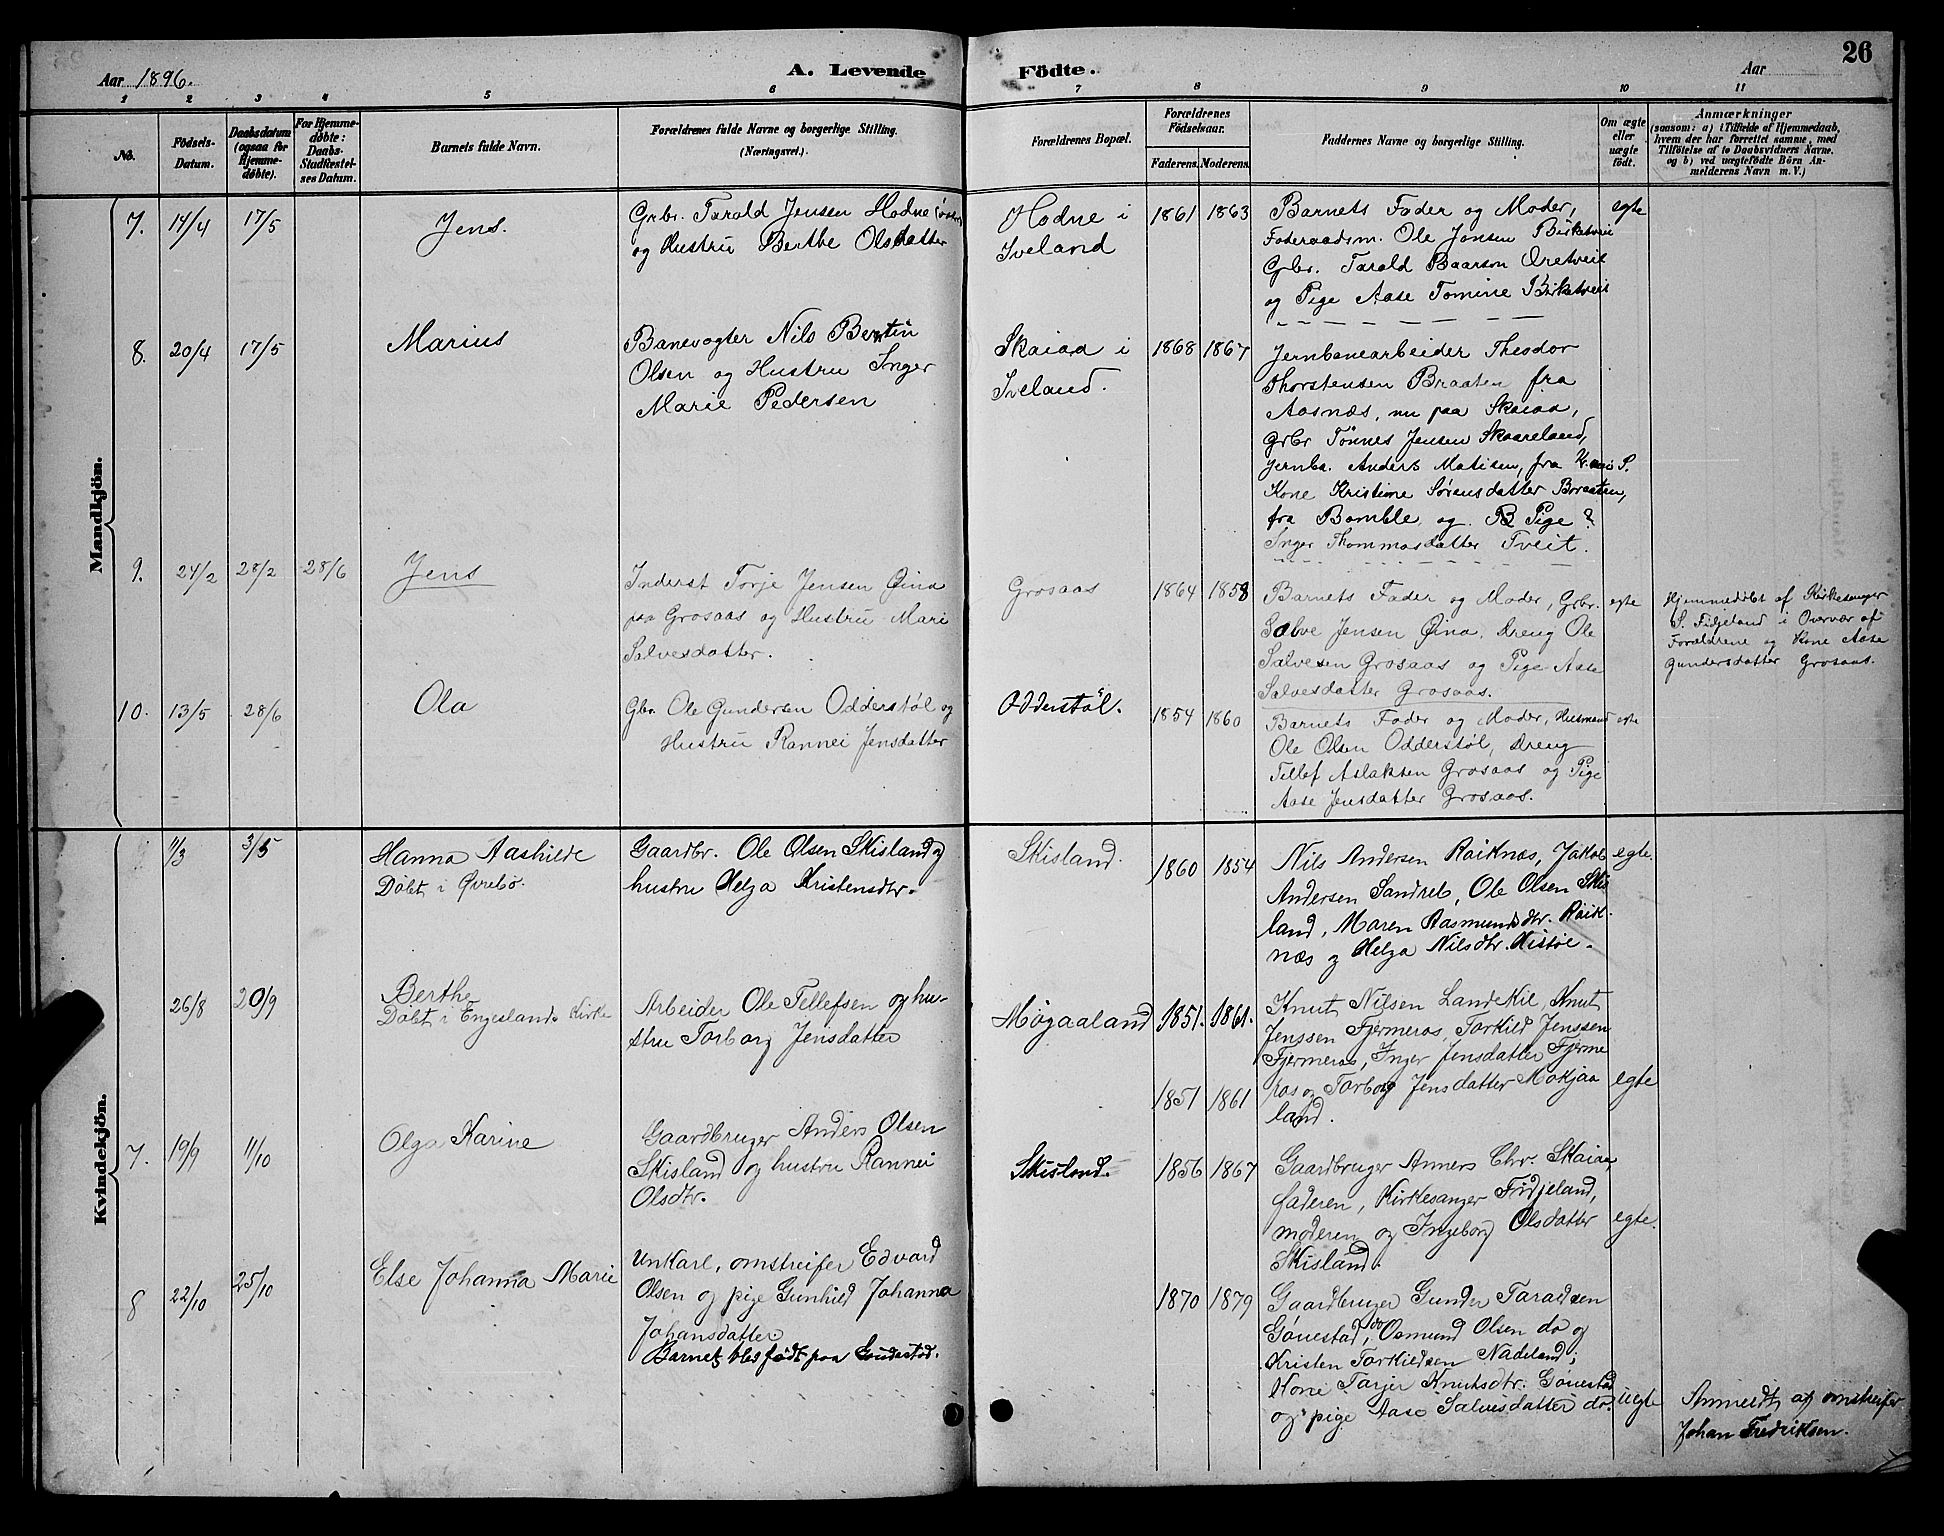 26
Aar 1896.
A. Levende Födte.
Aar
1 2 3 4 5 6 7 8 9 10 11
No.
Födsels-Datum.
Daabsdatum (ogsaa for Hjemmedöbte).
For Hjemmedøbte: Daabs-Stadfæstelses Datum.
Barnets fulde Navn.
Forældrenes fulde Navne og borgerlige Stilling. (Næringsvei.)
Forældrenes Bopæl.
Forældrenes Födselsaar.
Faderens. Moderens.
Faddernes Navne og borgerlige Stilling.
Om ægte eller uægte födt.
Anmærkninger
(saasom: a) i Tilfælde af Hjemmedaab, hvem der har forrettet samme, med Tilföielse af to Daabsvidners Navne. og b) ved uægtefödte Börn Anmelderens Navn m. V.)
Mandkjön.
7. 14/4 17/5 Jens.
Grbr. Tarald Jensen Hodne
og Hustru Berthe Olsdatter
Hodne i
Iveland
1861 1863
Barnets Fader og Moder,
Foderaadsm. Ole Jensen Birketveit
Grbr. Tarald Baarson
og Pige Aase Tomine Birketveit
egte
8. 20/4 17/5 Marius
Banevogter Nils Bertin
Olsen og Hustru Inger
Marie Pedersen
Skaiaa i
Iveland.
1868 1867
Jernbanearbeider Theodor
Thorstensen Braaten fra
Aasnæs, nu paa Skaiaa,
Grbr Tønnes Jensen Skaareland,
Jernba. Anders Matisen, fra
Kone Kristine Sørensdatter Braaten,
fra Bamble og Pige
Inger Thommasdatter Tveit.
9. 24/2 28/2 28/6 Jens
Inderst Torje Jensen Øina
paa Grosaas og Hustru Mari
Salvesdatter.
Grosaas
1864 1858
Barnets Fader og Moder, Grbr.
Salve Jensen Øina, Dreng Ole
Salvesen Grosaas og Pige Aase
Salvesdatter Grosaas.
egte
Hjemmedøbt af Kirkesanger
S. Fidjeland i Overvær af
Forældrene og Kone Aase
Gundersdatter Grosaas.
10. 13/5 28/6 Ola
Gbr. Ole Gundersen Odderstøl og
Hustru Rannei Jensdatter
Odderstøl.
1854 1860
Barnets Fader og Moder, Husmand
Ole Olsen Odderstøl, Dreng
Tellef Aslaksen Grosaas og Pige
Aase Jensdatter Grosaas.
egte
Kvindekjön.
11/3 3/5 Hanna Aashilde
Døbt i Øvrebø.
Gaardbr. Ole Olsen Skisland og
hustru Helga Kristensdtr.
Skisland.
1860 1854
Nils Andersen Røiknæs, Jakob
Andersen Sandrel, Ole Olsen Skis
land, Maren Rasmundsdtr. Røik-
næs og Helga Nilsdtr.
egte.
26/8 20/9 Berthe
Døbt i Engeslands Kirke
Arbeider Ole Tellefsen og hu-
stru Torborg Jensdatter
Møgaaland
1851. 1861.
1851 1861
Knut Nilsen Landekil, Knut
Jenssen Fjermeros, Torkild Jenssen
Fjermeros, Inger Jensdatter Fjerme
ros og Torborg Jensdatter Mokjaa
land.
egte
7. 19/9 11/10 Olga Karine
Gaardbruger Anders Olsen
Skisland og hustru Rannei
Olsdtr.
Skisland.
1856 1867
Gaardbruger Anners Chr. Skaiaa
faderen, Kirkesanger Fidjeland,
moderen og Ingeborg Olsdatter
Skisland.
egte.
8 22/10 25/10 Else Johanna Marie
Unkarl, omstreifer Edvard
Olsen og pige Gunhild Johanna
Johansdatter
Barnet blev født paa
1870 1879
Gaardbruger Gunder Taraldsen
Gønestad, Osmund Olsen do og
Kristen Torkildsen Nadeland,
Kone Tarjer Knutsdtr. Gønestad
og pige Aase Salvesdatter do.
uegte
Anmeldt af omstreifer
Johan Fredriksen.